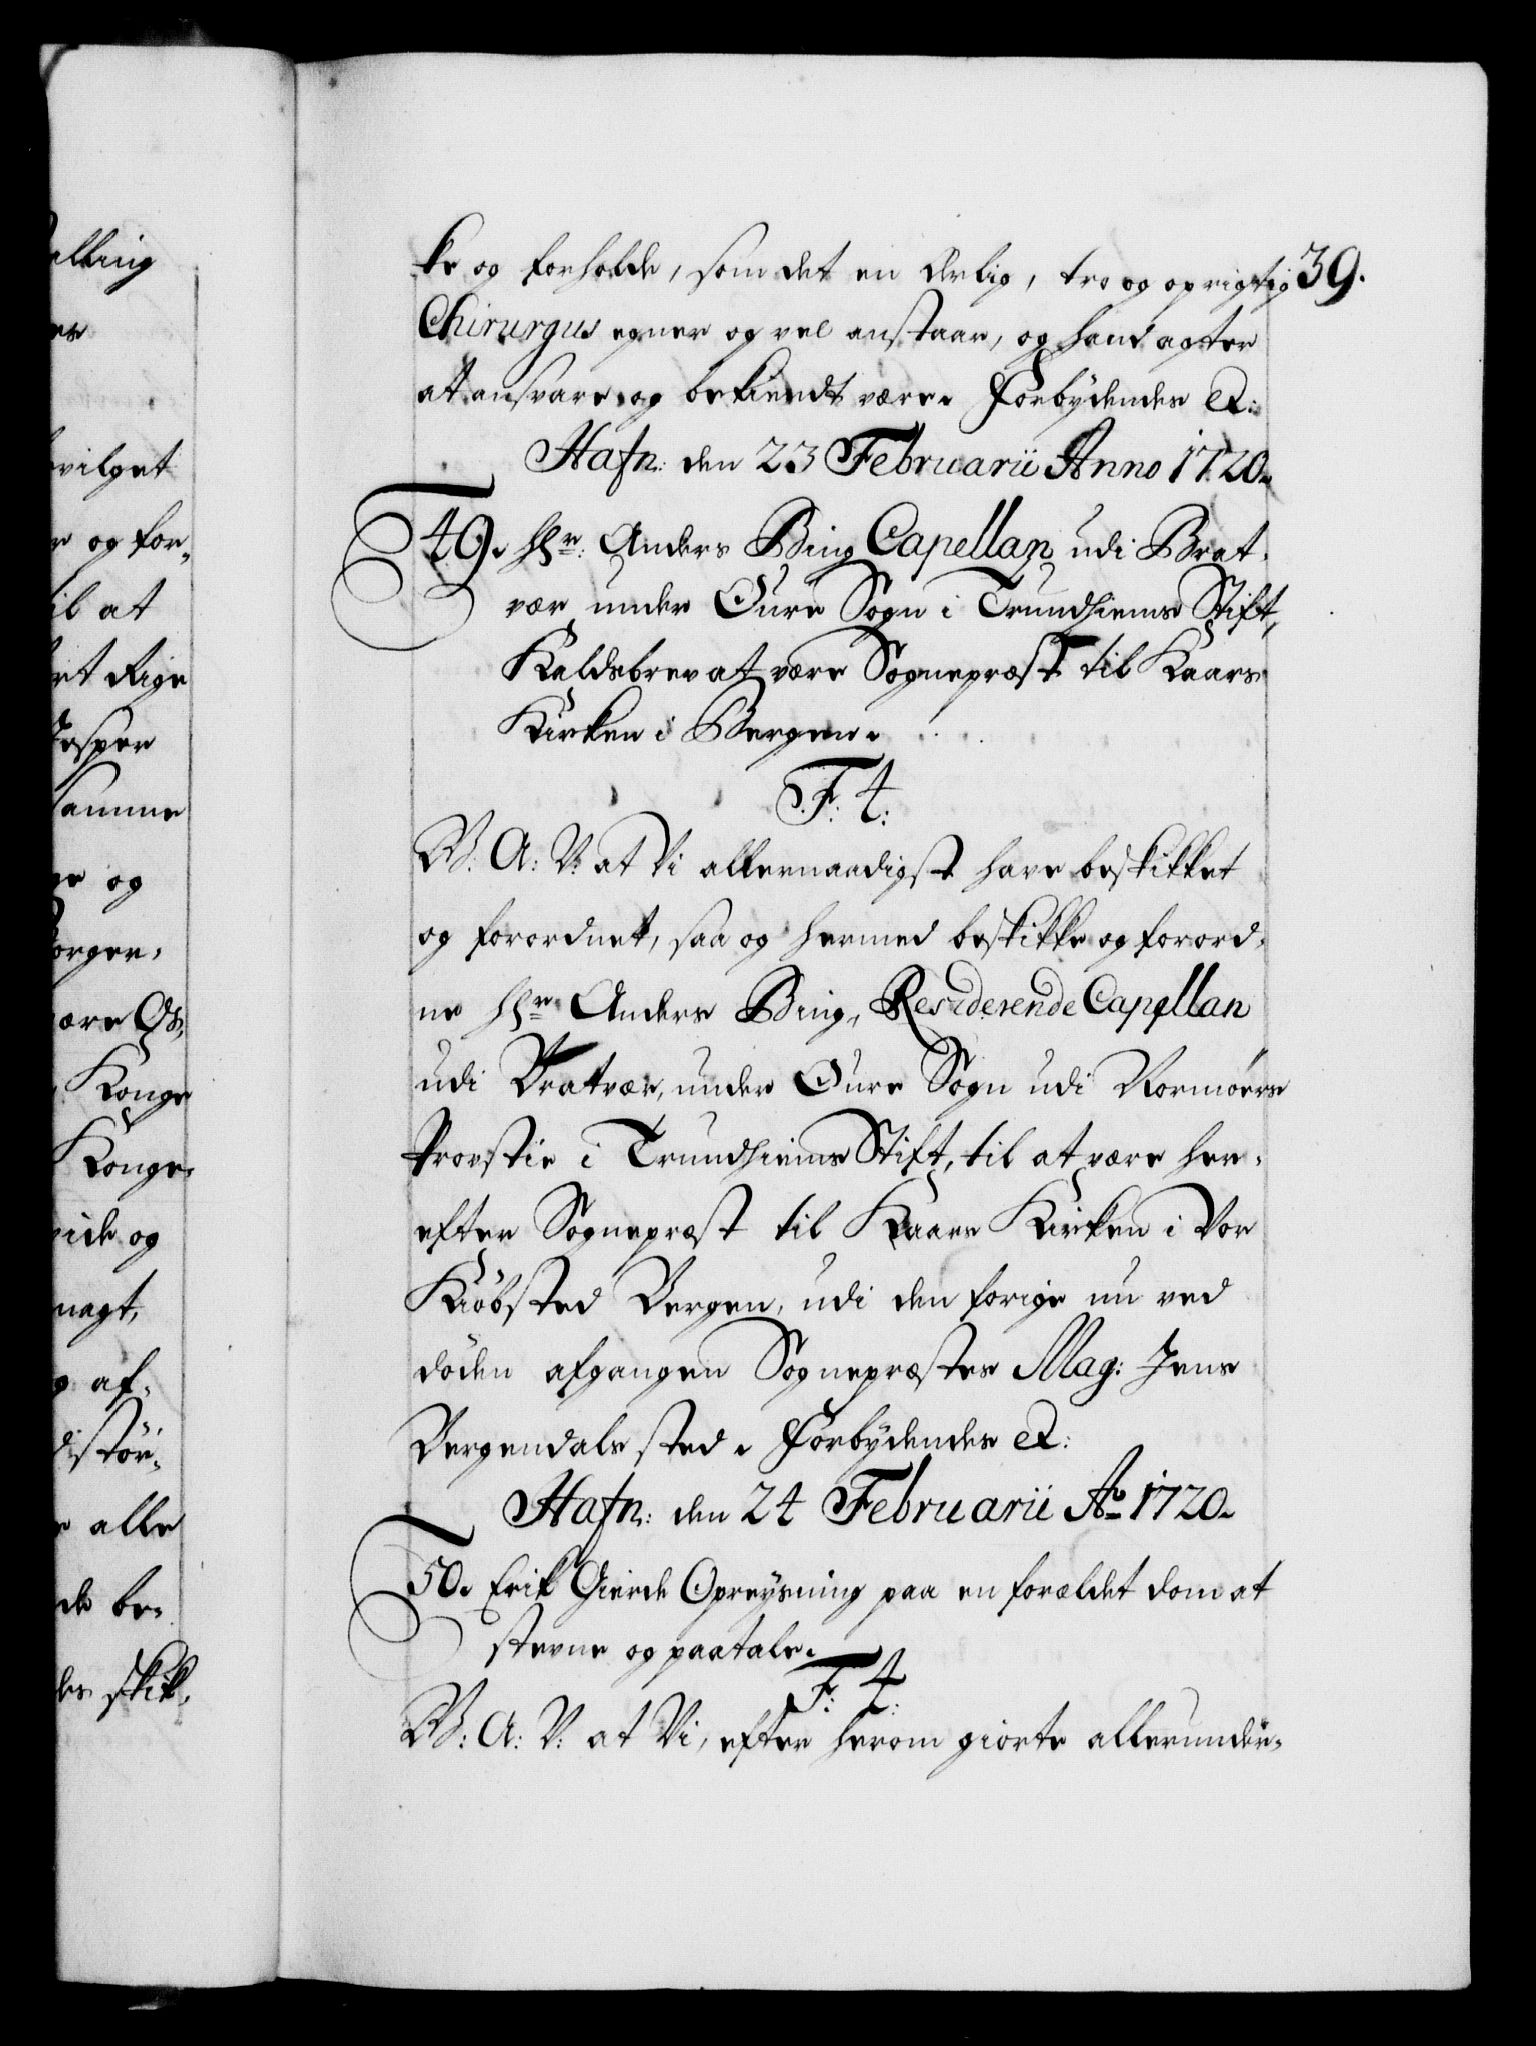 elling
er
vilget
r og for-
il at
et Rige
Jesper
samme
ge og
Borger-
være Os,
Konge
Konge-
vide og
magt,
g af-
distör-
e alle
de be-
des skik-
39.
ke og forholde, som det en Ærlig, tro og oprigtig
Chirurgus egner og vel anstaar, og hand agter
at ansvare og bekiendt være. Forbydendes etc:
Hafn: den 23 Februarii Anno 1720.
49. Hr: Anders Bing Capellan udi Brat-
vær under Øure Sogn i Trundhiems Stift,
Kaldsbrev at være Sognepræst til Kaars
Kirken i Bergen.
F. 4:
W: A: V: at Vi allernaadigst have beskikket
og forordnet, saa og hermed beskikke og forord-
ne Hr: Anders Bing, Residerende Capellan
udi Bratvær, under Øure Sogn udi Normörs
Provstie i Trundhiems Stift, til at være her-
efter Sognepræst til Kaars Kirken i Vor
Kiöbsted Bergen, udi den forige nu ved
döden afgangen Sognepræstes Mag: Jens
Bergendals sted. Forbydendes etc:
Hafn: den 24 Februarii Ao 1720.
50. Erik Gierde Opreysning paa en forældet dom at
stevne og paatale.
F: 4:
W: A: V: at Vi, efter herom giorte allerunder-